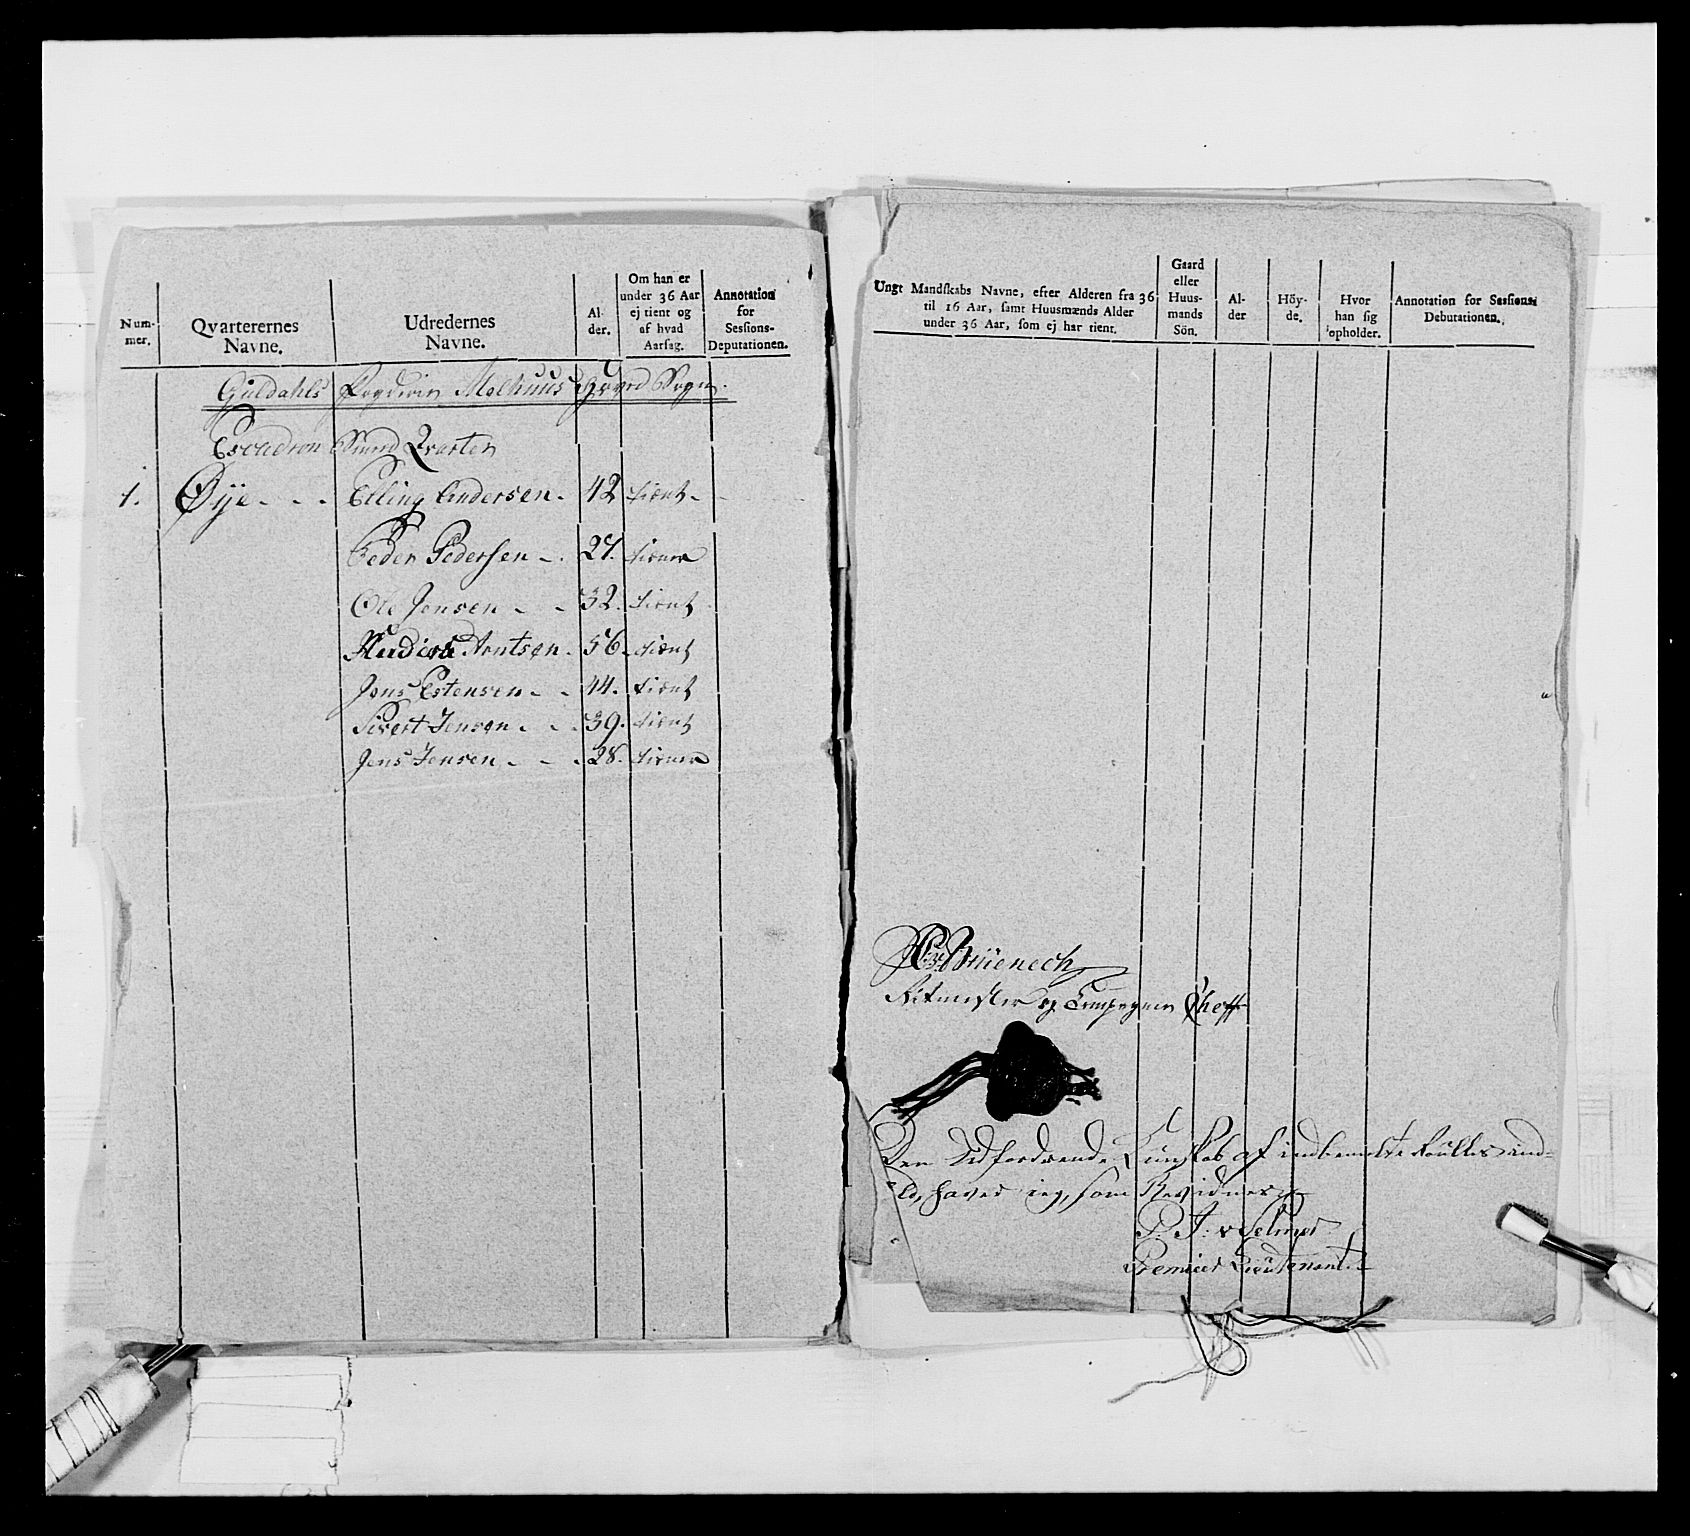 Num-
mer.
Qvarterernes
Navne.
Udredernes
Navne.
Al-
der.
Om han er
under 36 Aar
ej tient og
af hvad
Aarsag.
Annotation
for
Sessions-
Deputationen.
Guldahls Fogderie Melhuus Hoved Sogn.
Escadron Qvarter
1. Øye - - - Elling Andersen - 42 tient -
Peder Pedersen - . 27. tiener
Ole Jonsen - - 32. tient
Arntsen . 56. tient
Jens Estensen - - 44. tient
Sivert Jensen . - . 39. tient
Jens Jensen - - . 28. tiener
Ungt Mandskabs Navne, efter Alderen fra 36
til 16 Aar, samt Huusmænds Alder
under 36 Aar, som ej har tient.
Gaard
eller
Huus-
mands
Sön.
Al-
der
Höy-
de.
Hvor
han sig
opholder.
Annotation for Sessions-
Debutationen.
Brüenech
Ritmester og Compagnie Cheff
Den Udfordrende Kunskab af indbemelte Roulles ind=
hold, haver jeg, som Revideret
P. J. v Selmer
Premier Lieutenant.